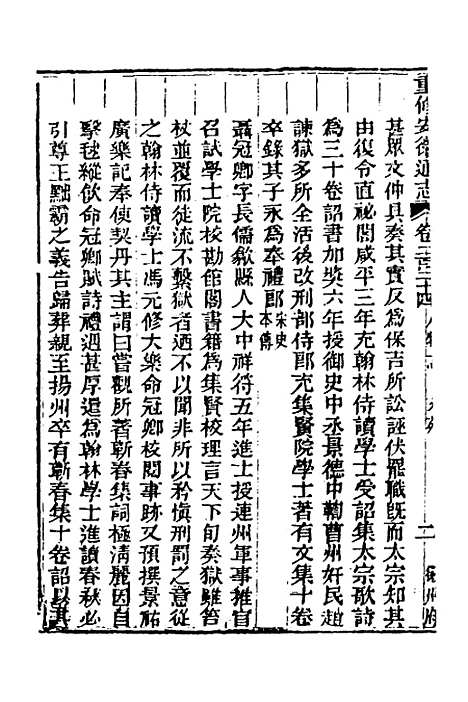 重修安徽通志 卷二百二十四 人物志 二 徽州府
甚眾文仲具奏其實反為保吉所訟誣伏罷職既而太宗知其
由復令直祕閣咸平三年充翰林侍讀學士受詔集太宗歌詩
為三十卷詔書加獎六年授御史中丞景德中鞫曹州奸民趙
諫獄多所全活後改刑部侍郎充集賢院學士著有文集十卷
卒錄其子永為奉禮郎宋史本傳
聶冠卿字長儒歙縣人大中祥符五年進士授連州軍事推官
召試學士院校勘館閣書籍為集賢校理言天下旬奏獄雖笞
杖並覆而徒流不繫獄者迺不以聞非所以矜慎刑罰之意從
之翰林侍讀學士馮元修大樂命冠卿檢閱事跡又預撰景祐
廣樂記奉使契丹其主謂曰嘗觀所著蘄春集詞極清麗因自
擊毬縱飲命冠卿賦詩禮遇甚厚還為翰林學士進讀春秋必
引尊王黜霸之義告歸葬親至揚州卒有蘄春集十卷詔以其